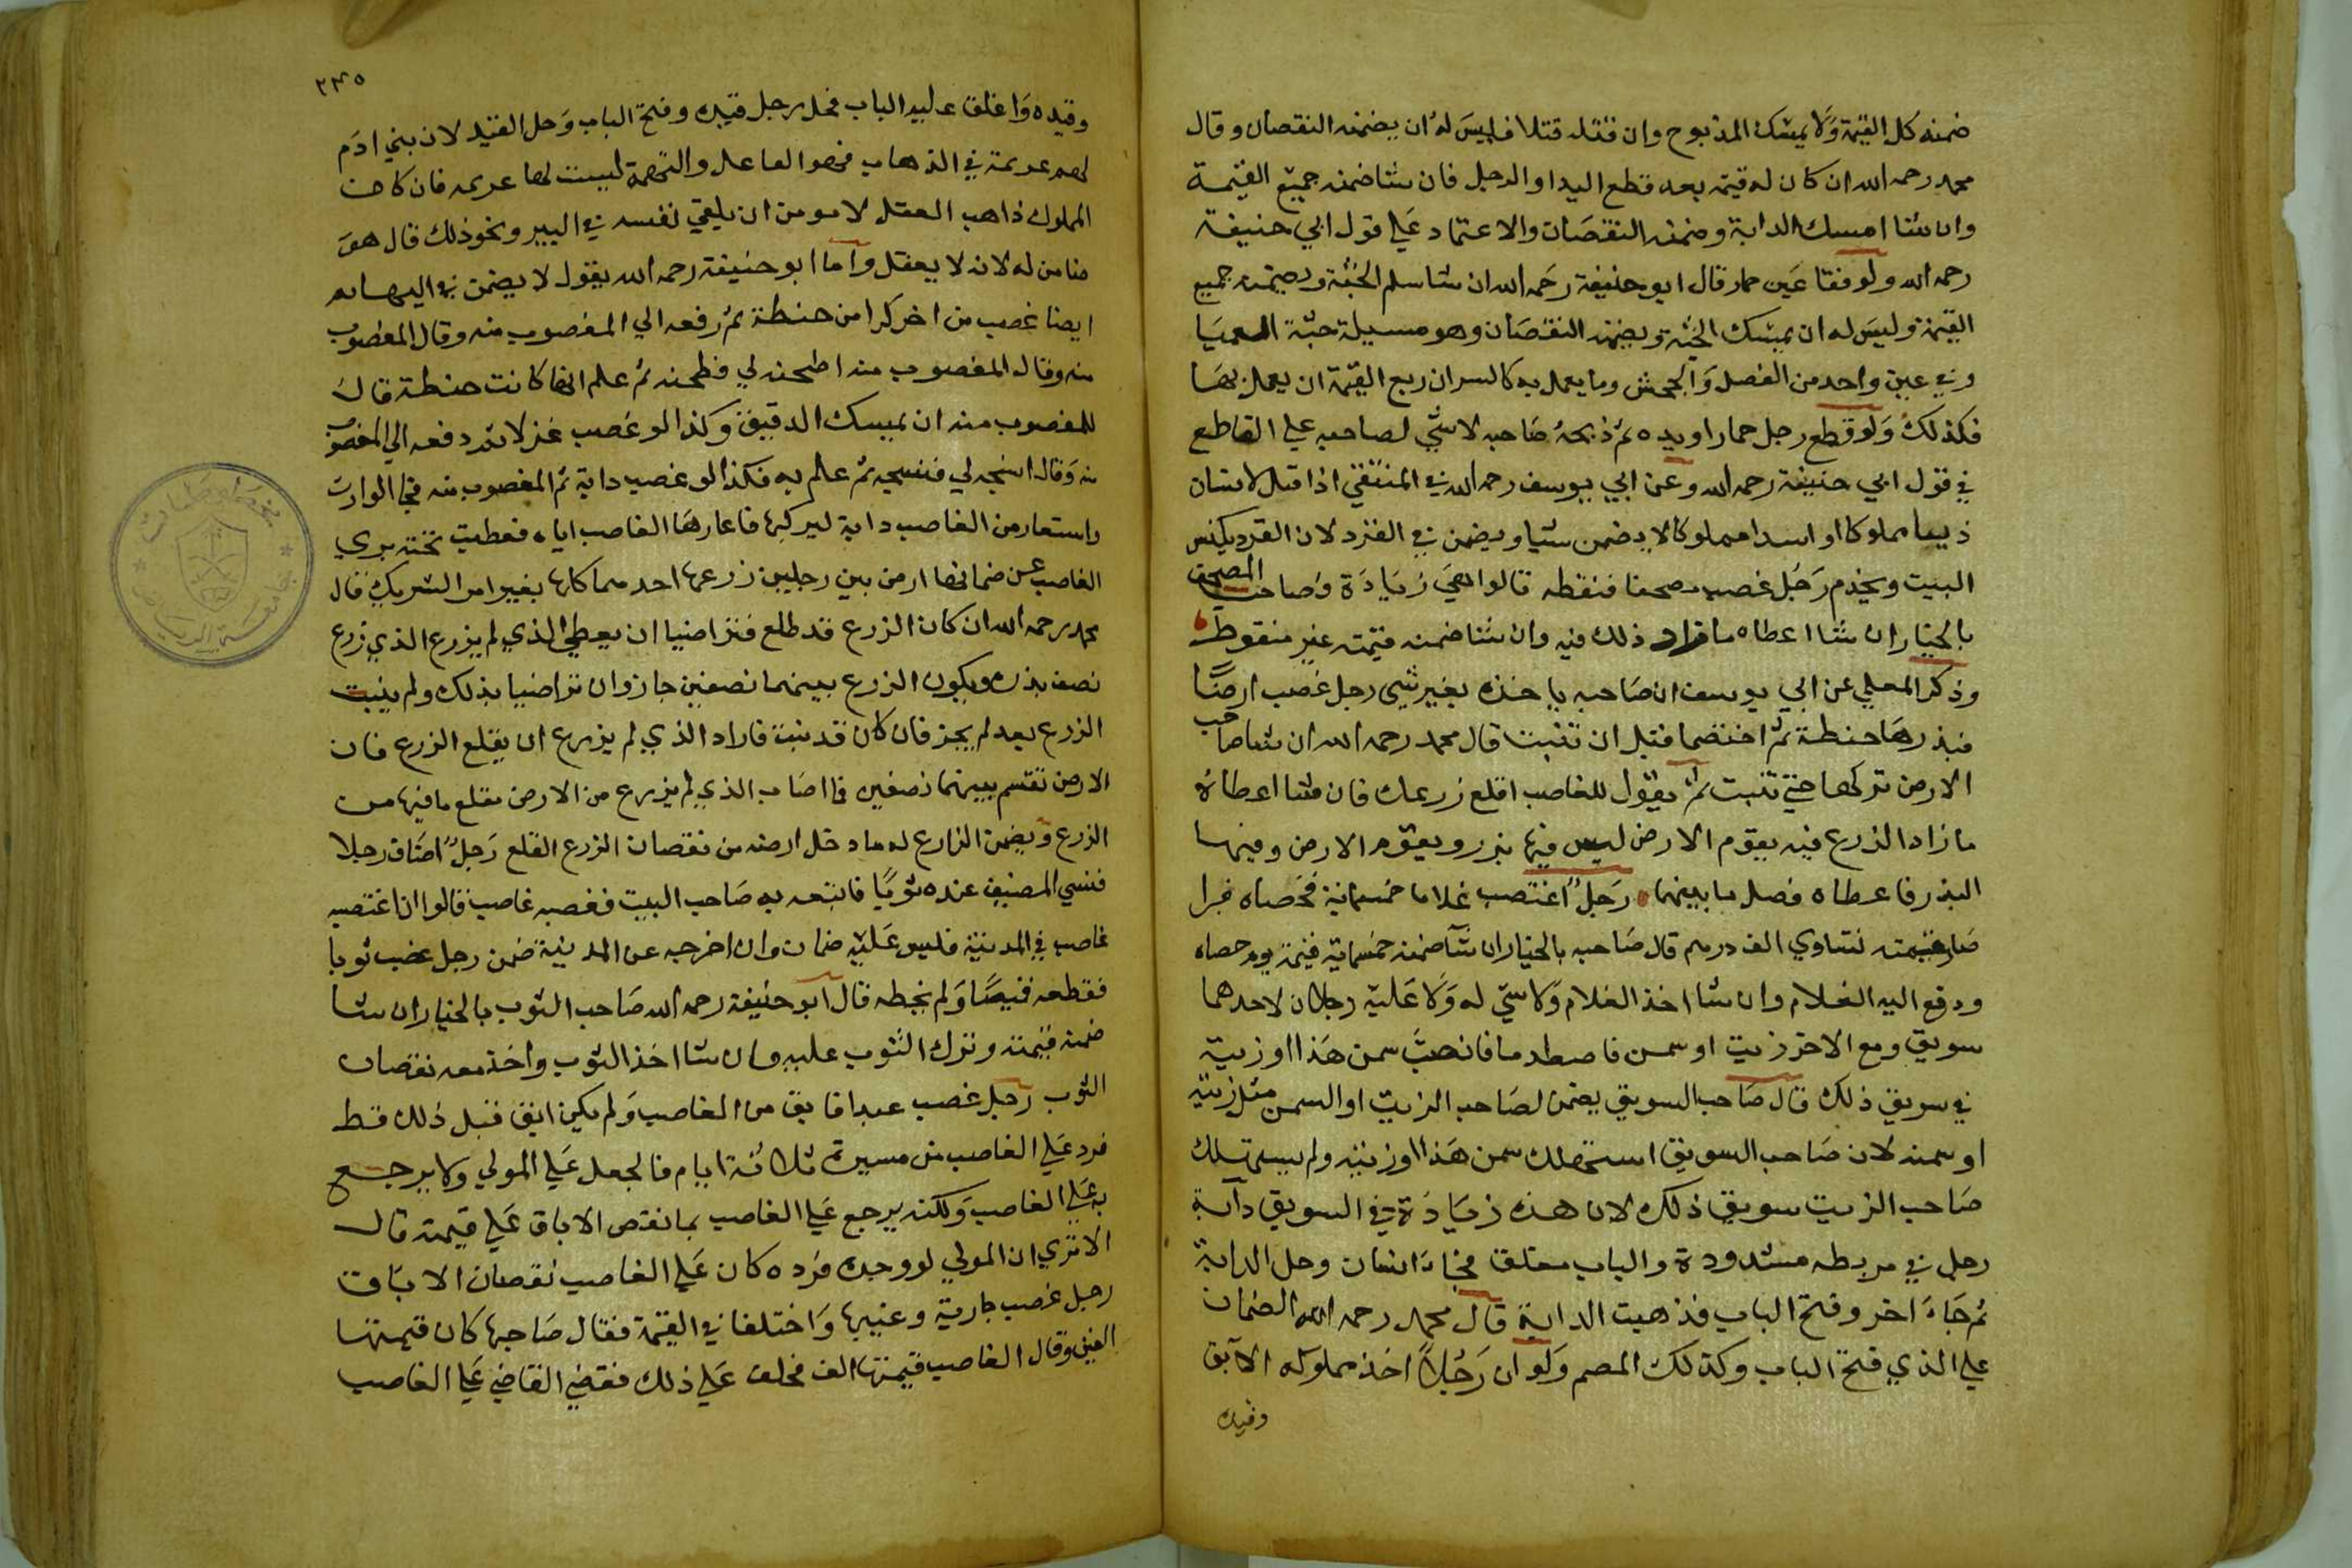 ضمنه كل القيمة ولا يمسك المذبوح وان قتله قتلا فليس له ان يضمنه النقصان وقال
محمد رحمه الله ان كان له قيمة بعد قطع اليد او الرجل فان شا ضمنه جميع القيمة
وان شا امسك الدابة وضمنه النقصان والاعتماد على قول ابي حنيفة
رحمه الله ولو فقا عين حمار قال ابو حنيفة رحمه الله ان شا سلم الجثة ويضمنه جميع
القيمة وليس له ان يمسك الجثة ويضمنه النقصان وهو مسيلة جثة العميا
وفي عين واحد من الفصل والجحش وما يعمل به كالسران ربع القيمة ان يعمل بها
فكذلك ولو قطع رجل حمار او يده ثم ذبحه صاحبه لا شي لصاحبه علي القاطع
في قول ابي حنيفة رحمه الله وعن ابي يوسف رحمه الله في المنتقي اذا قتل لانسان
ذيبا مملوكا او اسدا مملوكا لا يضمن شيا ويضمن في القرد لان القرد يكنس
البيت ويخدم رجل غصب مصحفا فنقطه قالوا هي زيادة وصاحب المصحف
بالخيار ان شا اعطاه ما زاد ذلك فيه وان شا ضمنه قيمته غير منقوط
وذكر المعلي عن ابي يوسف ان صاحبه ياخذه بغير شي رجل غصب ارضا
فبذرها حنطة ثم اختصما قبل ان تنبت قال محمد رحمه الله ان شا صاحب
الارض تركها حتي تنبت ثم يقول للغاصب اقلع زرعك فان شا اعطاه
ما زاد الزرع فيه يقوم الارض ليس فيها بزر ويقوم الارض وفيها
البذر فاعطاه فضل ما بينهما رجل اغتصب غلاما خمسماية فخصاه فبرا
صار قيمته تساوي الف درهم قال صاحبه بالخيار ان شا ضمنه خمسماية قيمة يوم خصاه
ودفع اليه الغلام وان شا اخذ الغلام ولا شي له ولا عليه رجلان لاحدهما
سويق ومع الاخر زيت او سمن فاصطدما فانصب سمن هذا او زيته
في سويق ذلك قال صاحب السويق يضمن لصاحب الزيت او السمن مثل زيته
او سمنه لان صاحب السويق استهلك سمن هذا او زيته ولم يستهلك
صاحب الزيت سويق ذلك لان هذه زيادة في السويق دابة
رجل في مربطه مشدودة والباب مغلق فجاء انسان وحل الدابة
ثم جاء اخر وفتح الباب فذهبت الدابة قال محمد رحمه الله الضمان
علي الذي فتح الباب وكذلك المصم ولو ان رجلا اخذ مملوكه الآبق
وقيده
٢٣٥
وقيده واغلق عليه الباب فحل رجل قيده وفتح الباب وحل القيد لان بني ادم
لهم عزيمة في الذهاب فهو الفاعل والبهيمة ليست لها عزيمه فان كان
المملوك ذاهب العقل لا يومن ان يلقي نفسه في البير ونحو ذلك قال هو
ضامن له لانه لا يعقل واما ابو حنيفة رحمه الله يقول لا يضمن في البهايم
ايضا غصب من اخر كرا من حنطة ثم رفعه الي المغصوب منه وقال المغصوب
منه وقال المغصوب منه اطحنه لي فطحنه ثم علم انها كانت حنطة قال
للمغصوب منه ان يمسك الدقيق وكذا لو غصب غزلا ثم دفعه الي المغصوب
منه وقال انسجه لي فنسجه ثم علم به فكذا لو غصب دابة ثم المغصوب منه فجا الوارث
واستعار من الغاصب دابة ليركبها فاعارها الغاصب اياه فعطبت تحته بري
الغاصب عن ضمانها ارض بين رجلين زرعها احدهما كلها بغير امر الشريك قال
محمد رحمه الله ان كان الزرع قد طلع فتراضيا ان يعطي الذي لم يزرع الذي زرع
نصف بذره ويكون الزرع بينهما نصفين جاز وان تراضيا بذلك ولم ينبت
الزرع بعد لم يجز فان كان قد نبت فاراد الذي لم يزرع ان يقلع الزرع فان
الارض تقسم بينهما نصفين فما اصاب الذي لم يزرع من الارض يقلع ما فيها من
الزرع ويضمن الزارع له ما دخل ارضه من نقصان الزرع القلع رجل اضاف رجلا
فنسي المضيف عنده ثوبا فاتبعه به صاحب البيت فغصبه غاصب قالوا ان اغتصبه
غاصب في المدينة فليس عليه ضمان وان اخرجه عن المدينة ضمن رجل غصب ثوبا
فقطعه قميصا ولم يخطه قال ابو حنيفة رحمه الله صاحب الثوب بالخيار ان شا
ضمنه قيمته وترك الثوب عليه وان شا اخذ الثوب واخذ معه نقصان
الثوب رجل غصب عبدا فابق من الغاصب ولم يكن ابق قبل ذلك قط
فرد علي الغاصب من مسيرة ثلاثة ايام فالجعل علي المولي ولا يرجع
به علي الغاصب ولكنه يرجع علي الغاصب بما نقص الاباق علي قيمته قال
الا تري ان المولي لو وجده فرده كان علي الغاصب نقصان الاباق
رجل غصب جارية وعيبها واختلفا في القيمة فقال صاحبها كان قيمتها
الفين وقال الغاصب قيمتها الف فحلف علي ذلك فقضي القاضي علي الغاصب